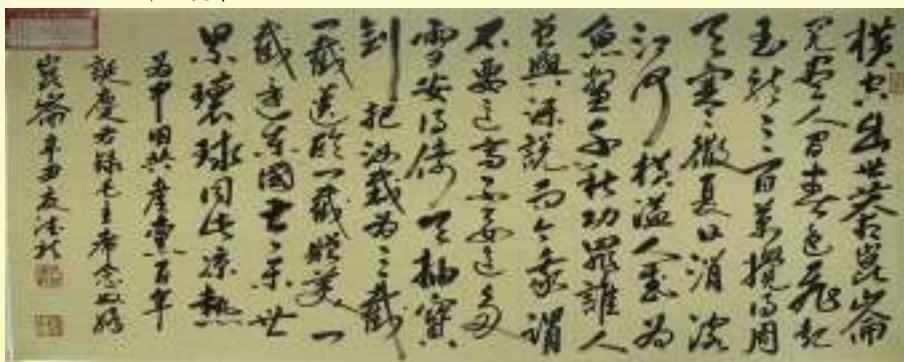 橫空出世莽崑崙
閱盡人間春色飛起
玉龍三百萬攪得周
天寒徹夏日消溶
江河橫溢人或為
魚鱉千秋功罪誰人
曾與評說而今我謂
不要這高不要這多
雪安得倚天抽寶
劍把汝裁為三截
一截遺歐一截贈美一
截還東國太平世
界環球同此涼熱
為中國共產黨百年
誕慶書錄毛主席念奴嬌
崑崙辛丑友德